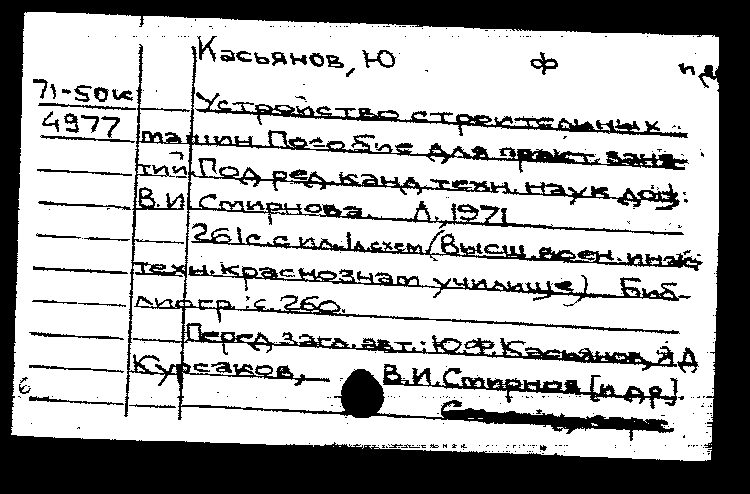 Касьянов, Ю Ф и др
71-50к
4977
Устройство строительных
машин. Пособие для практ. заня-
тий. Под ред. канд. техн. наук доц.
В.И. Смирнова. Л. 1971
261с. с ил. схем (Высш. воен. инж.
техн. краснознам училище) Биб-
лиогр: с. 260.
Перед загл. авт.: Ю.Ф. Касьянов, Я Д
Курсаков, В.И. Смирнов [и др].
6